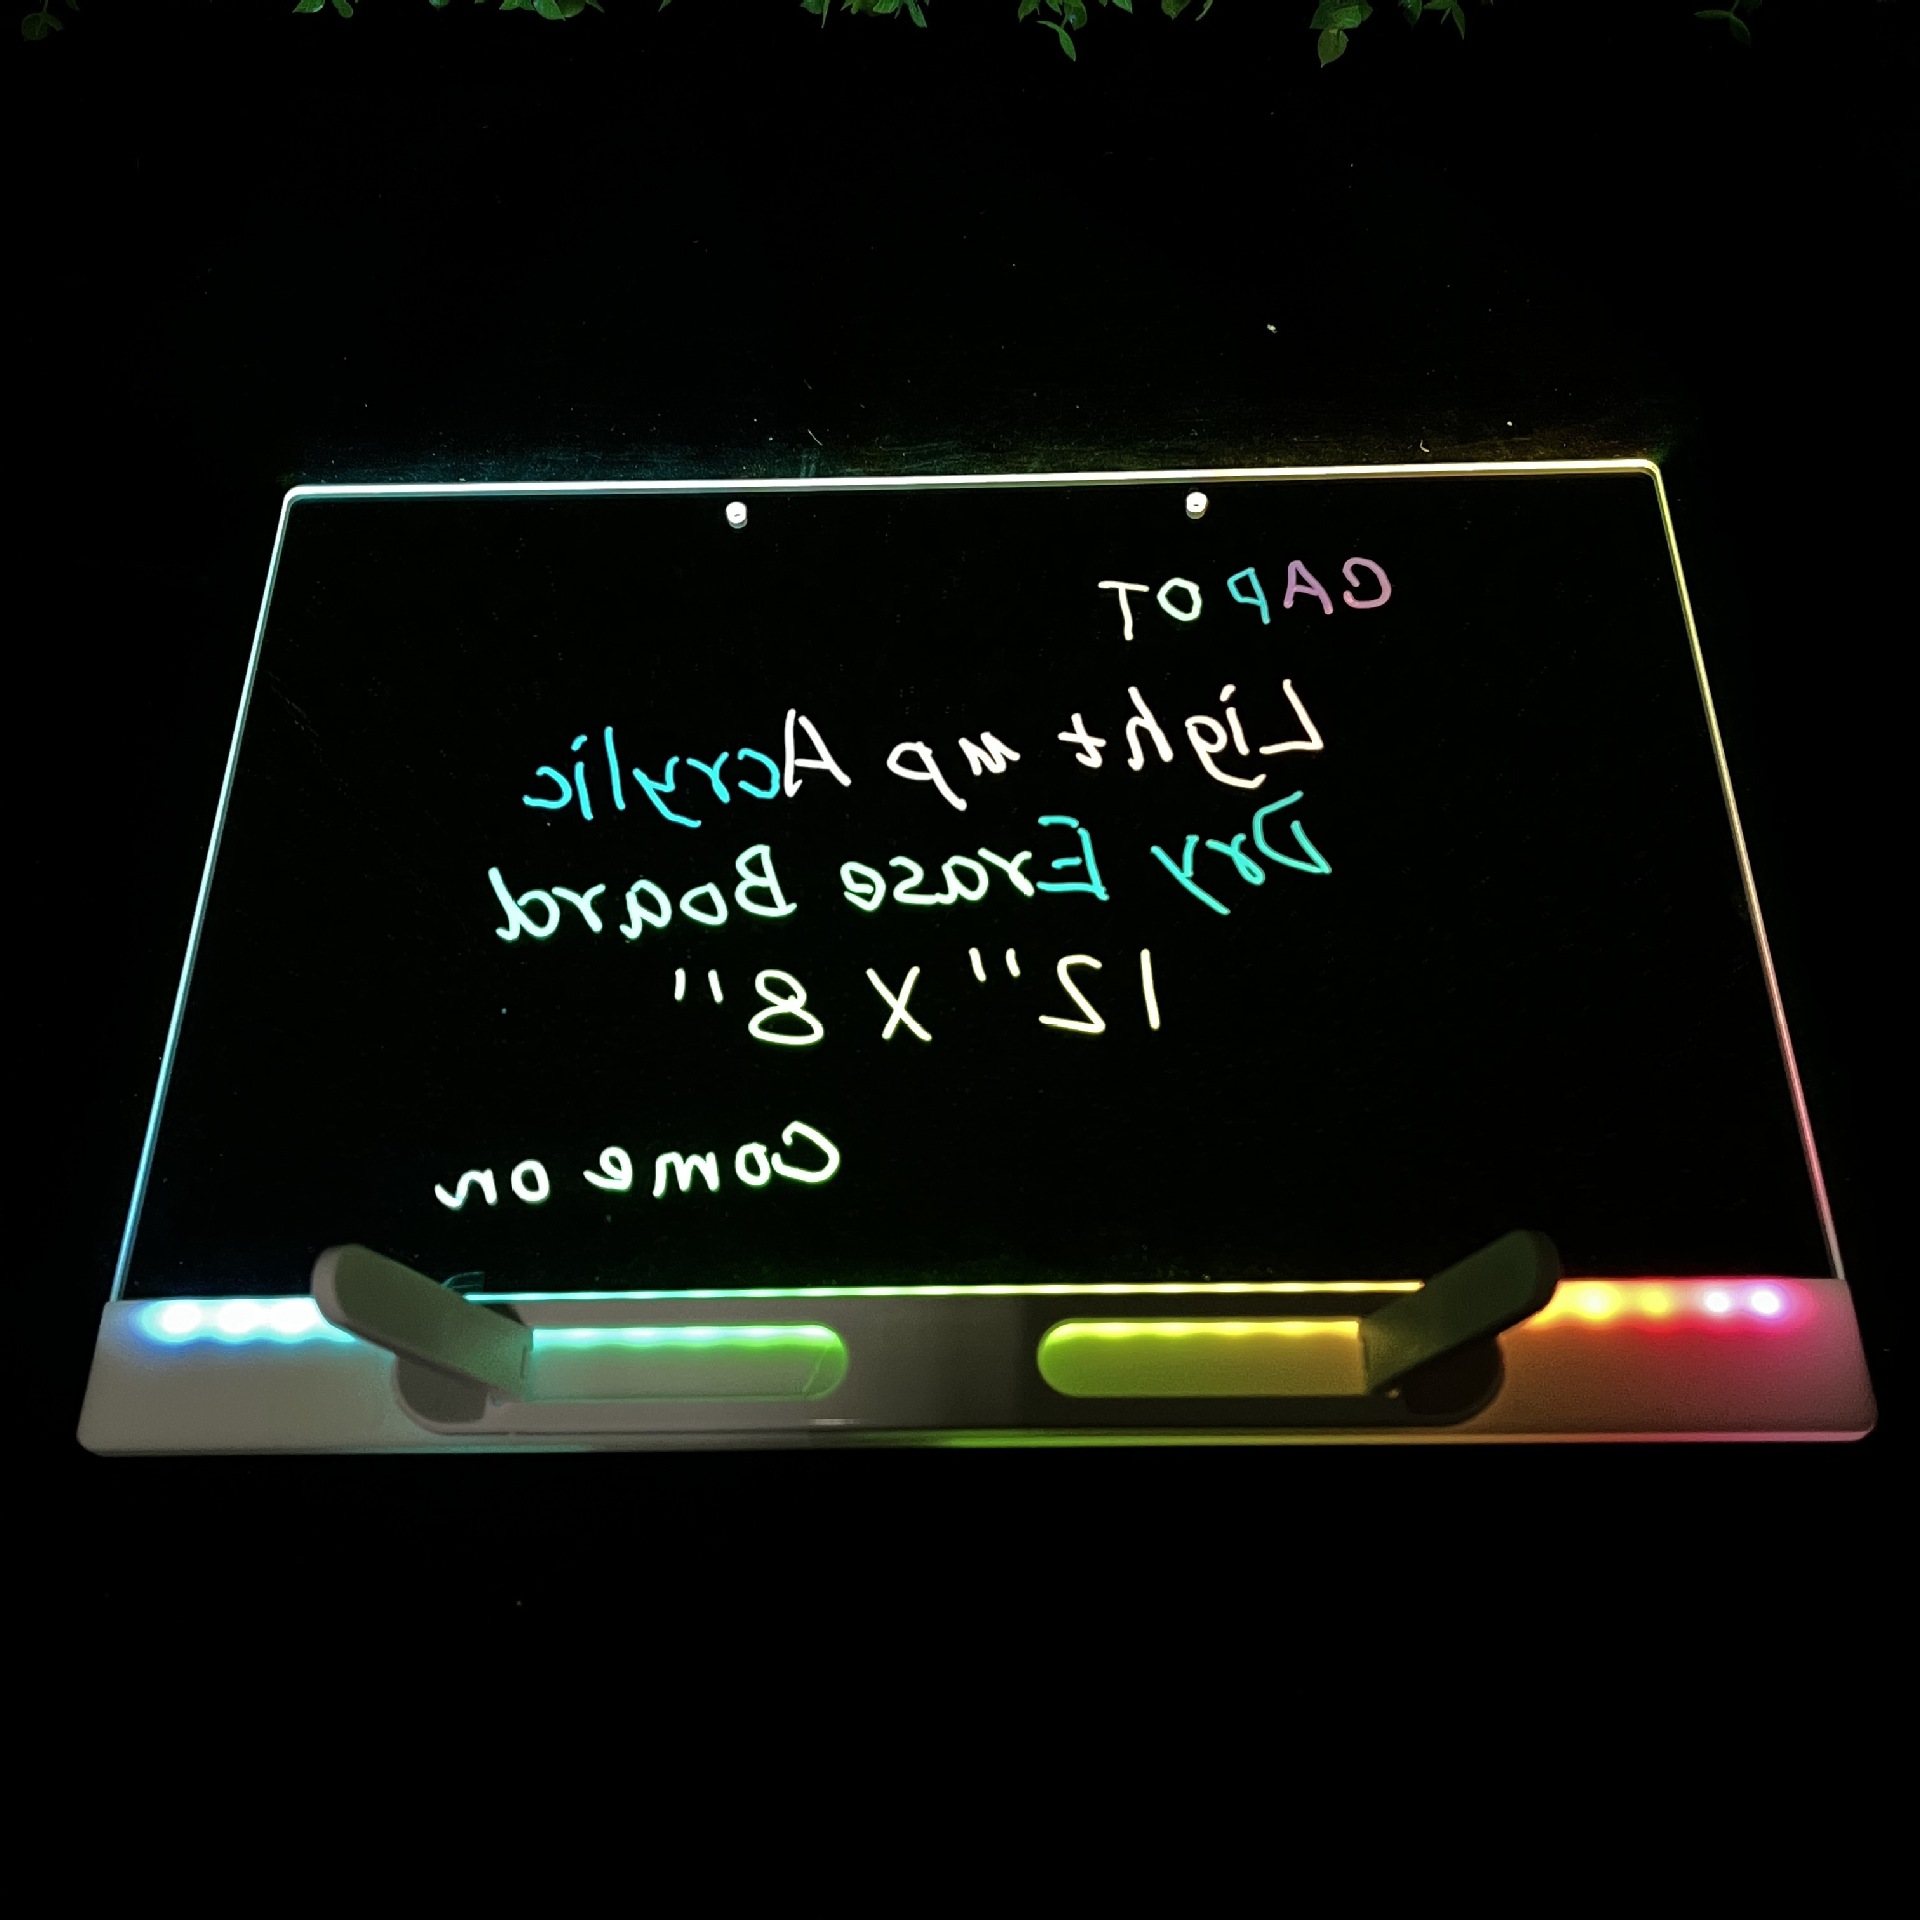 CAPOT
Light up Acrylic
Dry Erase Board
12" X 8"
Come on